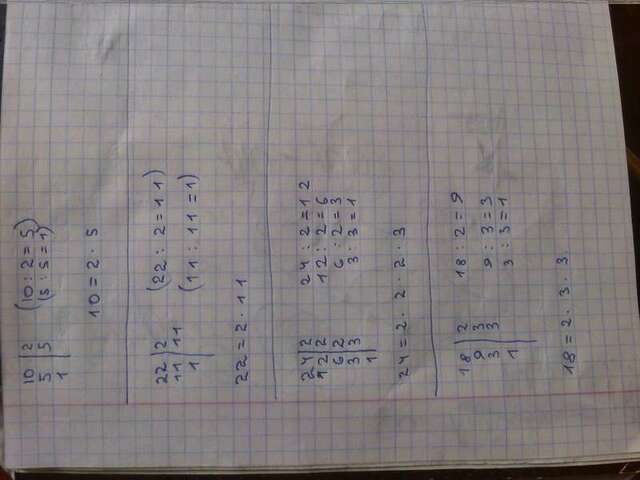 10 | 2 (10 : 2 = 5)
5 | 5 (5 : 5 = 1)
1
10 = 2 · 5
22 | 2 (22 : 2 = 11)
11 | 11 (11 : 11 = 1)
1
22 = 2 · 11
24 | 2 24 : 2 = 12
12 | 2 12 : 2 = 6
6 | 2 6 : 2 = 3
3 | 3 3 : 3 = 1
1
24 = 2 · 2 · 2 · 3
18 | 2 18 : 2 = 9
9 | 3 9 : 3 = 3
3 | 3 3 : 3 = 1
1
18 = 2 · 3 · 3